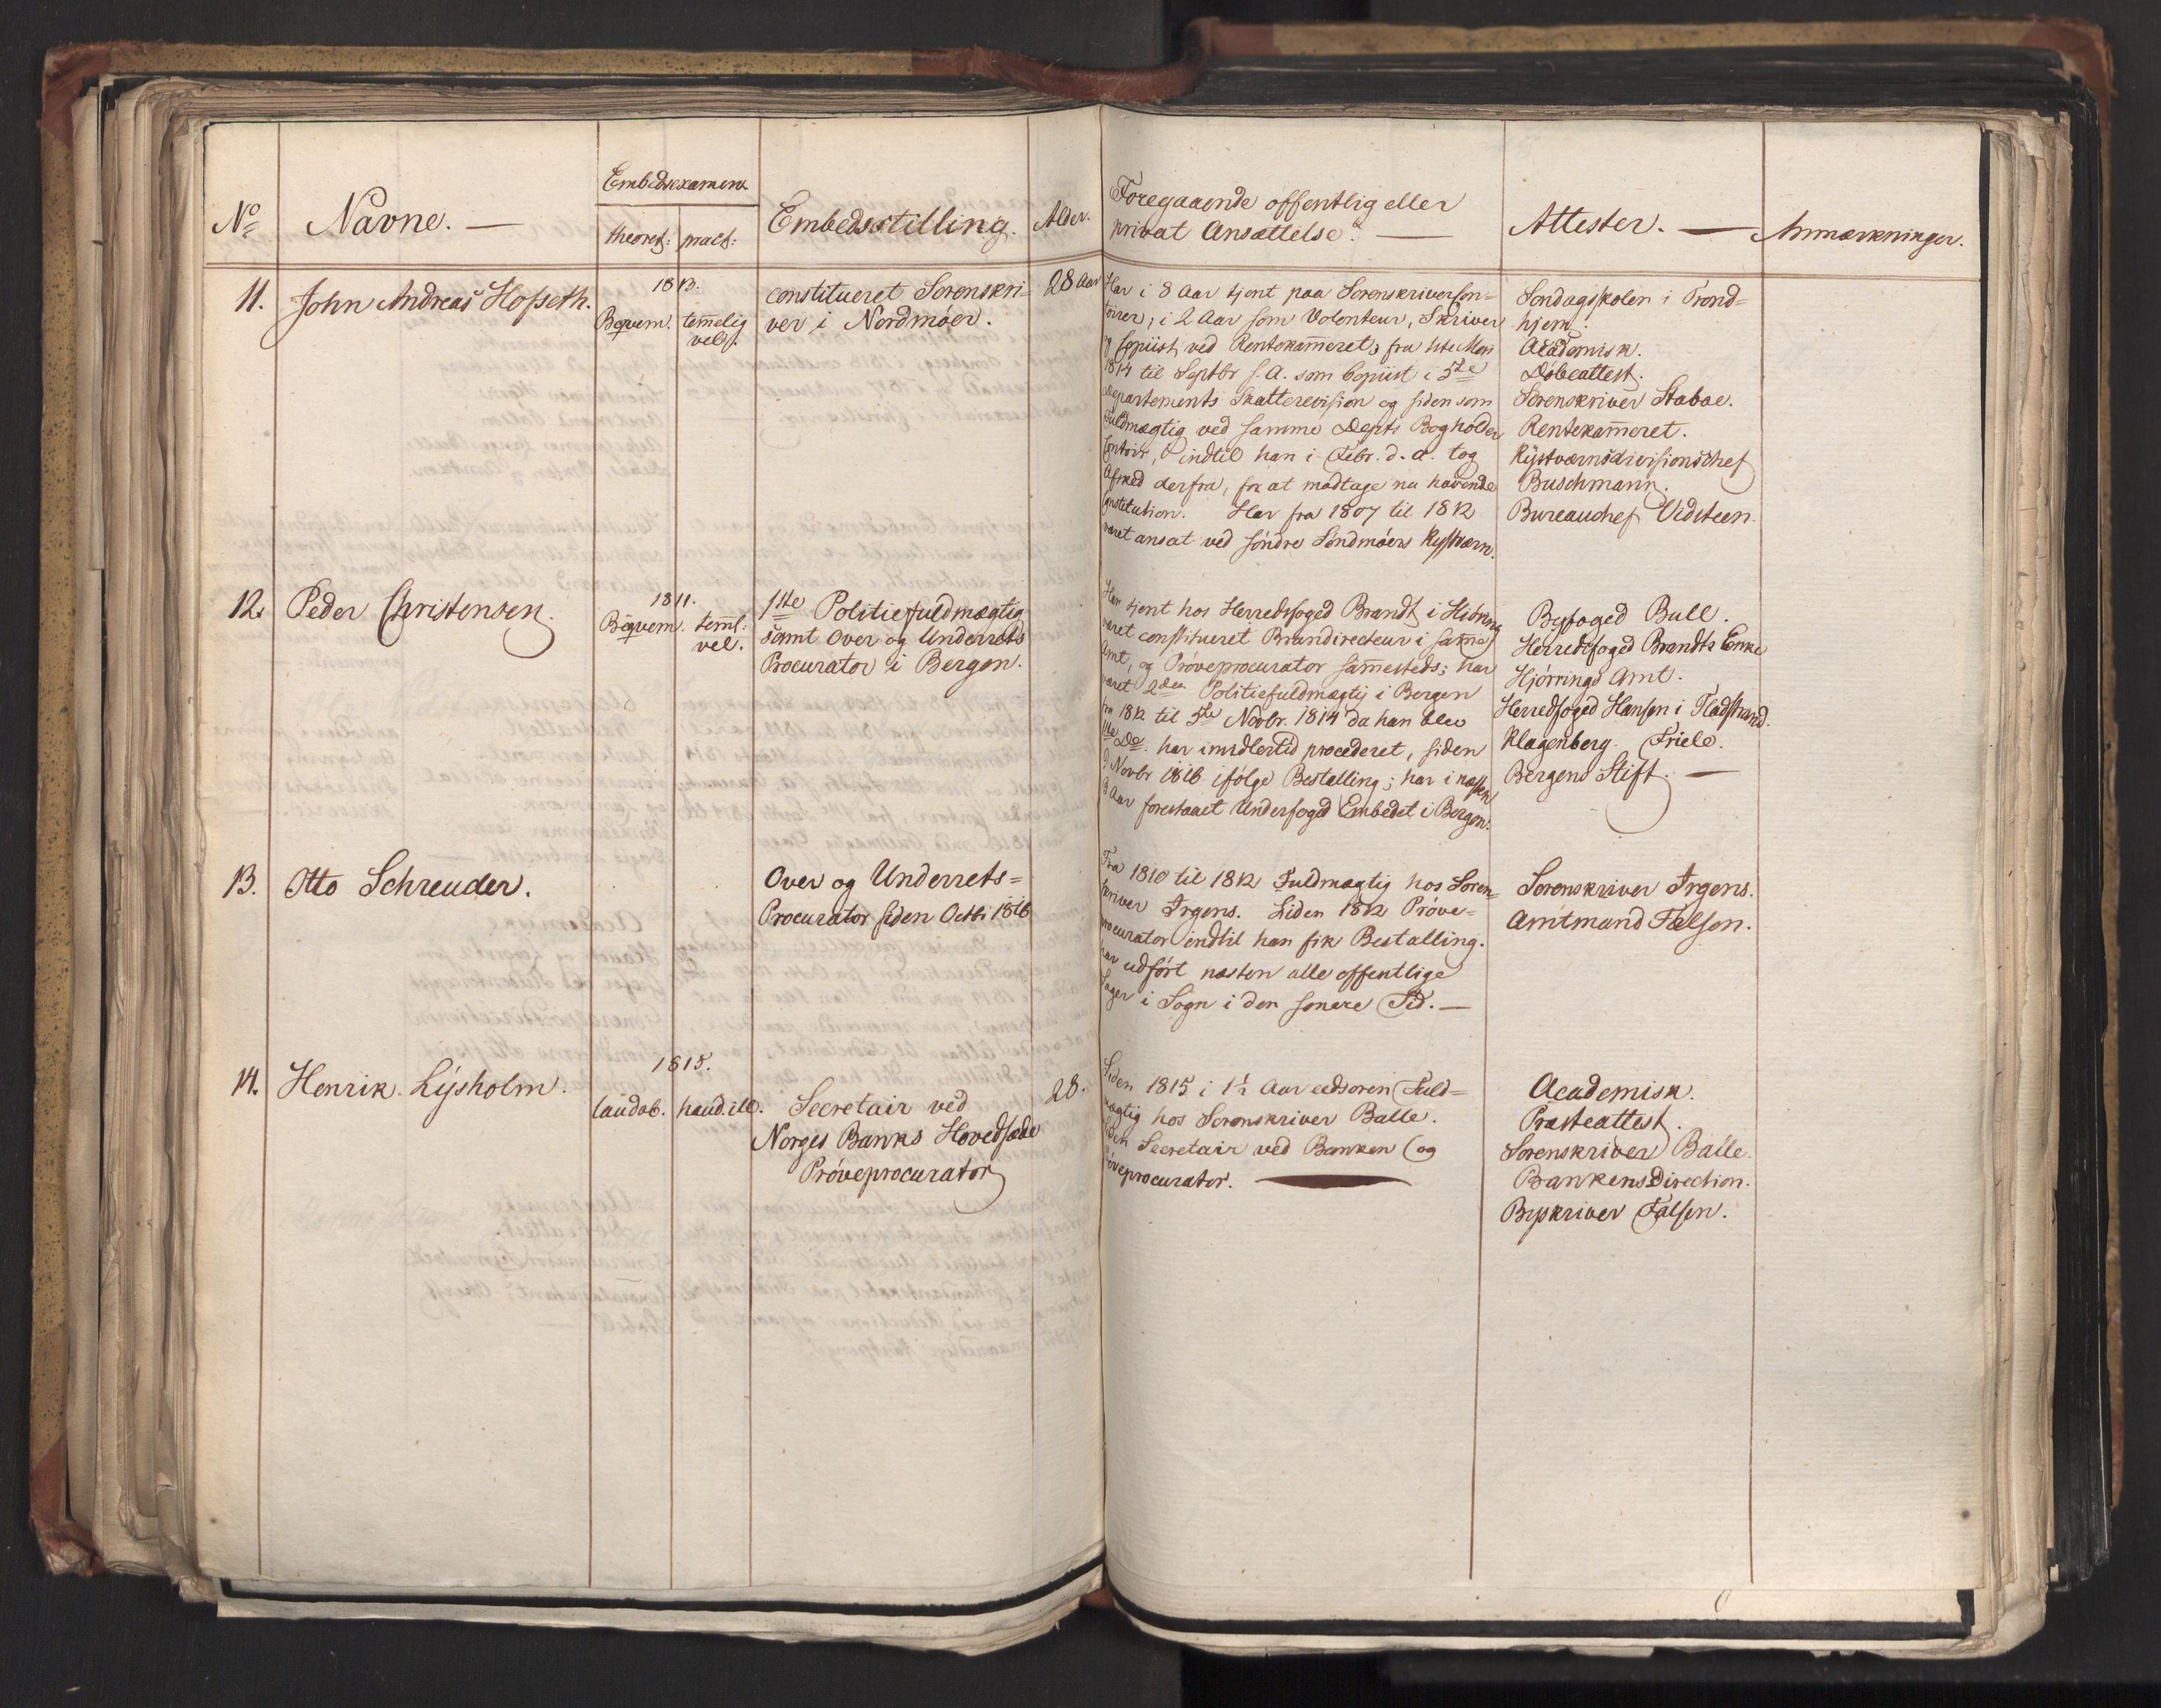 No
Navne. —
Embedsexamens
theoret: pract:
Embedsstilling.
Alder.
Foregaaende offentlig eller
privat Ansættelse. —
Attester. —
Anmærkninger.
11. John Andreas Hofseth.
1812.
Beqvem. temelig
vel.
constitueret Sorenskri-
ver i Nordmöer.
28 Aar
Har i 8 Aar tjent paa Sorenskrivercon-
toirer, i 2 Aar som Volonteur, Skriver
og Copiist ved Rentekameret, fra
1814 til Septbr s. A. som Copiist i 5te
Departements Skatterevision og siden som
Fuldmægtig ved samme Depts Bogholder
Contoir, indtil han i Febr. d. A. tog
Afsked derfra, for at modtage nu havende
Constitution. Har fra 1807 til 1812
været ansat ved söndre Söndmöers Kystværn.
Søndagsskolen i Trond-
hjem.
Academisk.
Döbeattest.
Sorenskriver Stabae.
Rentekameret.
Kystværnsdivisionschef
Buschmann.
Bureauchef Vidsteen.
12. Peder Christensen.
1811.
Beqvem. teml:
vel.
1ste Politiefuldmægtig
samt Over og Underrets
Procurator i Bergen.
Har tjent hos Herredsfoged Brandt i Hiörring
været constitueret Branddirecteur i same
Amt, og Pröveprocurator samesteds; har
været 2den Politiefuldmægtig i Bergen
fra 1812 til 5te Novbr. 1814 da han blev
1ste Do. har imidlertid procederet, siden
Novbr 1816 ifölge Bestalling; har i næsten
3 Aar forestaaet Underfoged Embedet i Bergen.
Byfoged Bull.
Herredsfoged Brandts Enke
Hjörrings Amt.
Herredsfoged Hansen i Fladstrand.
Klagenberg. Friele.
Bergens Stift. —
13. Otto Schreuder.
Over og Underrets-
Procurator siden Octbr 1816
Fra 1810 til 1812 Fuldmægtig hos Soren-
skriver Irgens. Siden 1812 Pröve-
procurator indtil han fik Bestalling.
har udfört næsten alle offentlige
Sager i Sogn i den senere Tid. —
Sorenskriver Irgens.
Amtmand Falsen.
14. Henrik Lysholm.
1815.
laudab. haud.ill.
Secretair ved
Norges Banks Hovedsæde
Pröveprocurator
28.
Siden 1815 i 1½ Aar eedsoren Fuld-
mægtig hos Sorenskriver Balle.
siden Secretair ved Banken og
Pröveprocurator. —
Academisk.
Præsteattest.
Sorenskriver Balle.
Bankens Direction.
Byskriver Falsen.